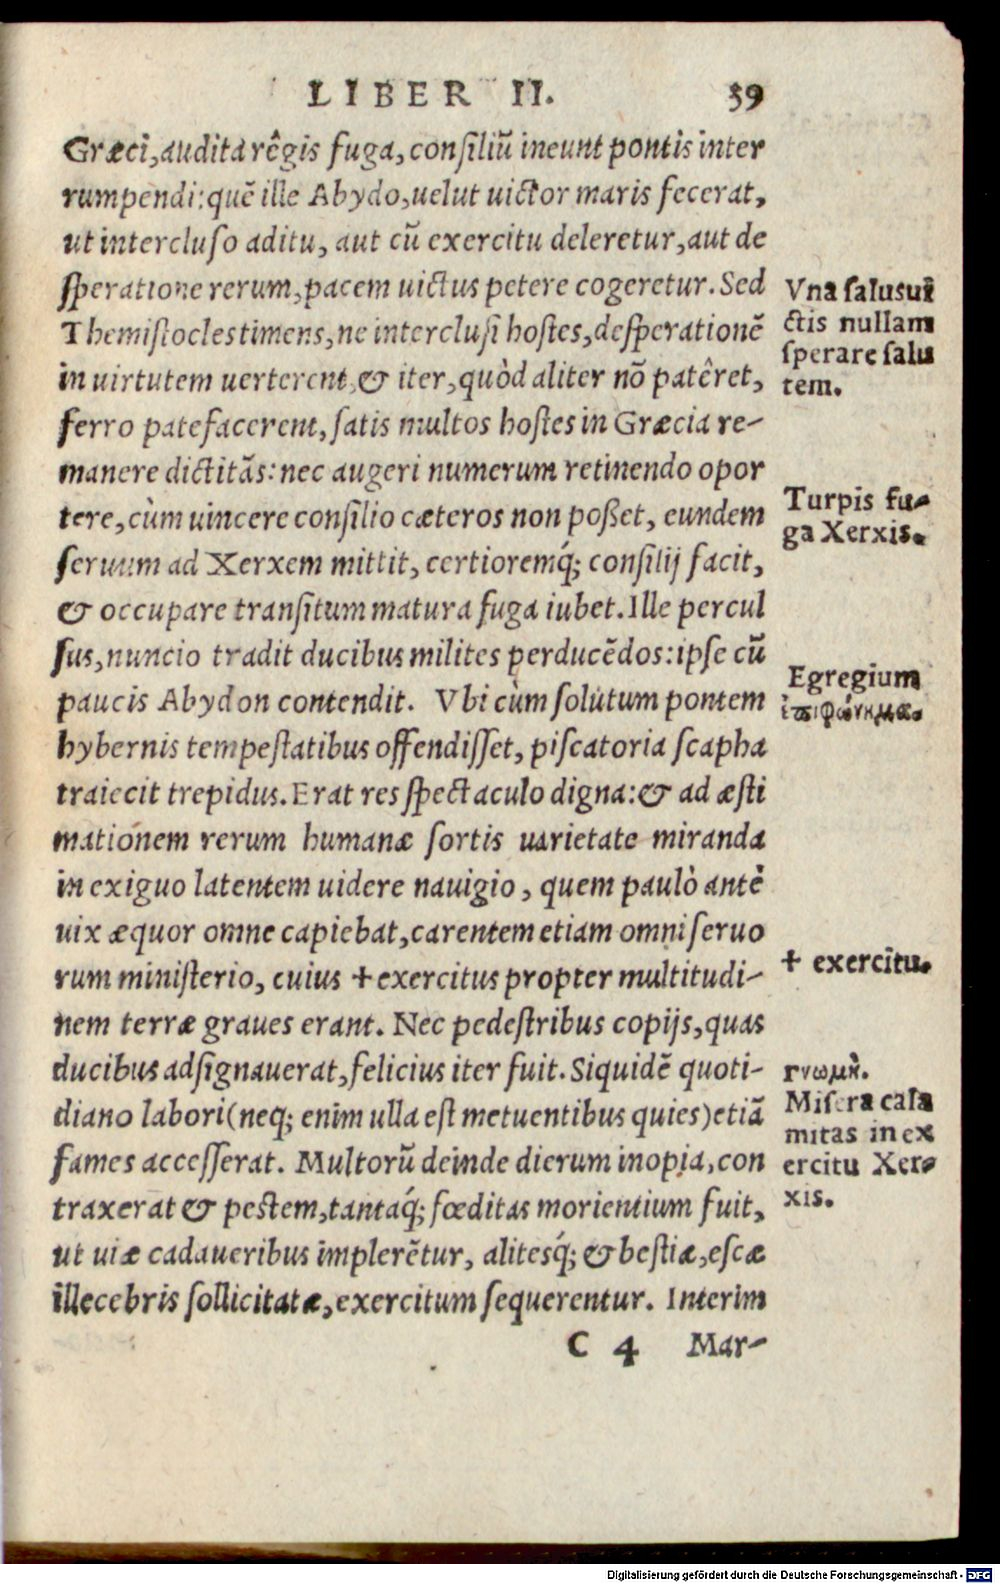 LIBER II. 39
Græci, audita rêgis fuga, consiliũ ineunt pontis inter
rumpendi: quẽ ille Abydo, uelut uictor maris fecerat,
ut intercluso aditu, aut cũ exercitu deleretur, aut de
speratione rerum, pacem uictus petere cogeretur. Sed
Themistocles timens, ne interclusi hostes, desperationẽ
in uirtutem uerterent, & iter, quòd aliter nõ patêret,
ferro patefacerent, satis multos hostes in Græcia re-
manere dictitãs: nec augeri numerum retinendo opor
tere, cùm uincere consilio cæteros non poßet, eundem
seruum ad Xerxem mittit, certioremq́; consilij facit,
& occupare transitum matura fuga iubet. Ille percul
sus, nuncio tradit ducibus milites perducẽdos: ipse cũ
paucis Abydon contendit. Vbi cùm solutum pontem
hybernis tempestatibus offendisset, piscatoria scapha
traiecit trepidus. Erat res spectaculo digna: & ad æsti
mationem rerum humanæ sortis uarietate miranda
in exiguo latentem uidere nauigio, quem paulò antè
uix æquor omne capiebat, carentem etiam omni seruo
rum ministerio, cuius + exercitus propter multitudi-
nem terræ graues erant. Nec pedestribus copijs, quas
ducibus adsignauerat, felicius iter fuit. Siquidẽ quoti-
diano labori (neq; enim ulla est metuentibus quies) etiã
fames accesserat. Multorũ deinde dierum inopia, con
traxerat & pestem, tantaq́; fœditas morientium fuit,
ut uiæ cadaueribus implerẽtur, alitesq́; & bestiæ, escæ
illecebris sollicitatæ, exercitum sequerentur. Interim
C 4 Mar-
Vna salus uĩ
ctis nullam
sperare salu
tem.
Turpis fu-
ga Xerxis.
Egregium
ἐπιφώνημα.
+ exercitu.
γνωμὴ.
Misera cala
mitas in ex
ercitu Xer-
xis.
Digitalisierung gefördert durch die Deutsche Forschungsgemeinschaft - DFG